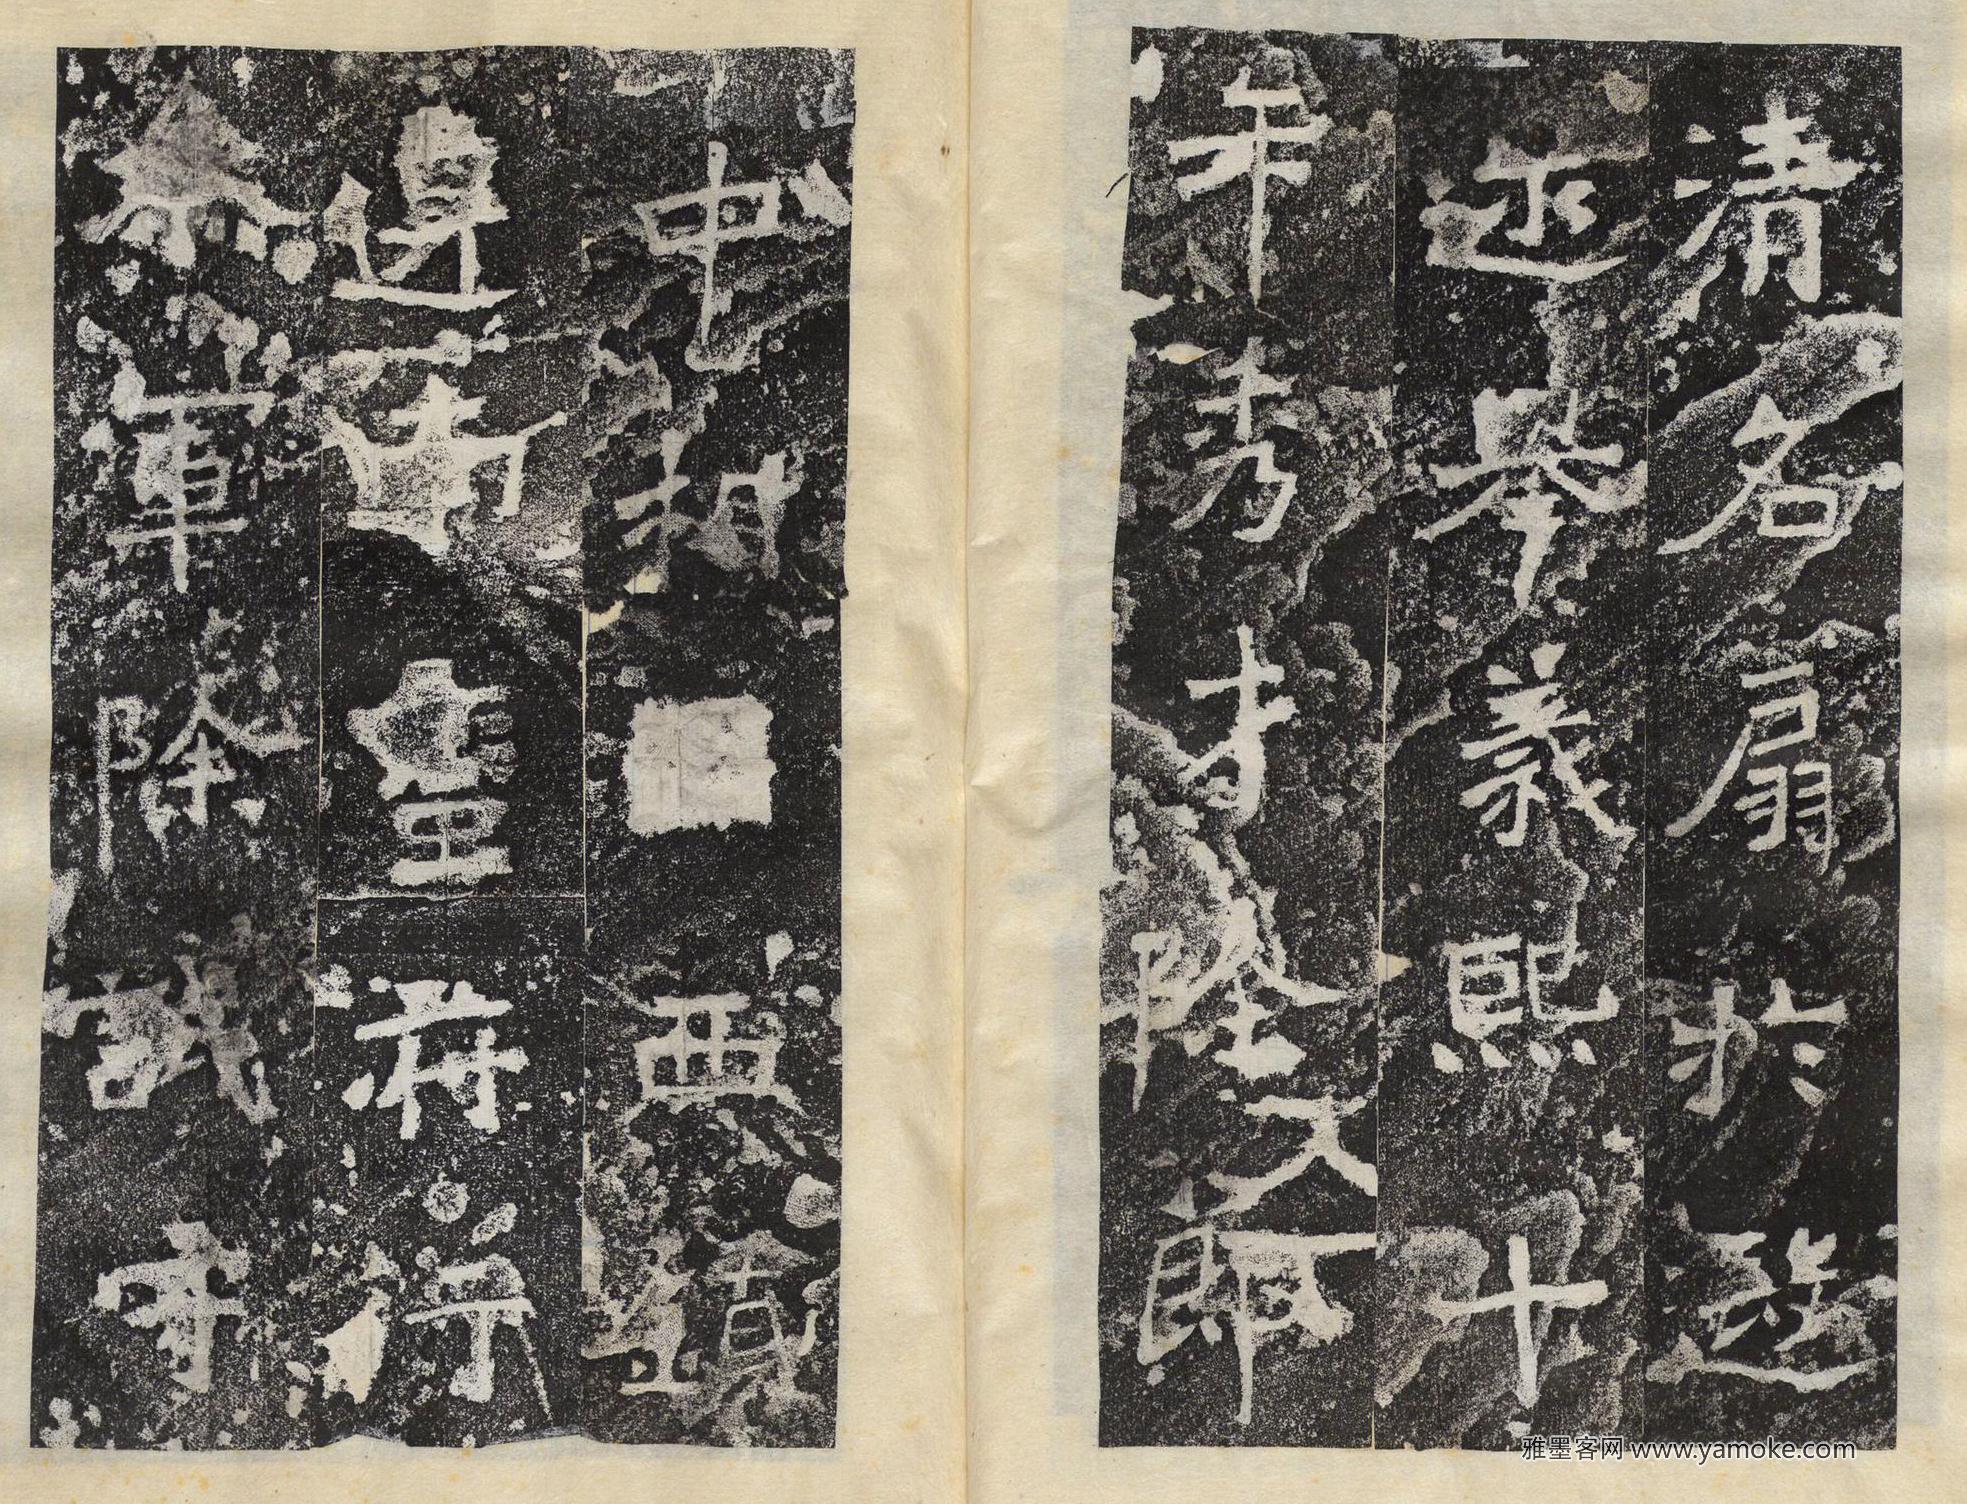 清名扇於遐
迩舉義熙十
年秀才除郎
中相西鎮
遷南蠻府行
參軍除試守
雅墨客网 www.yamoke.com